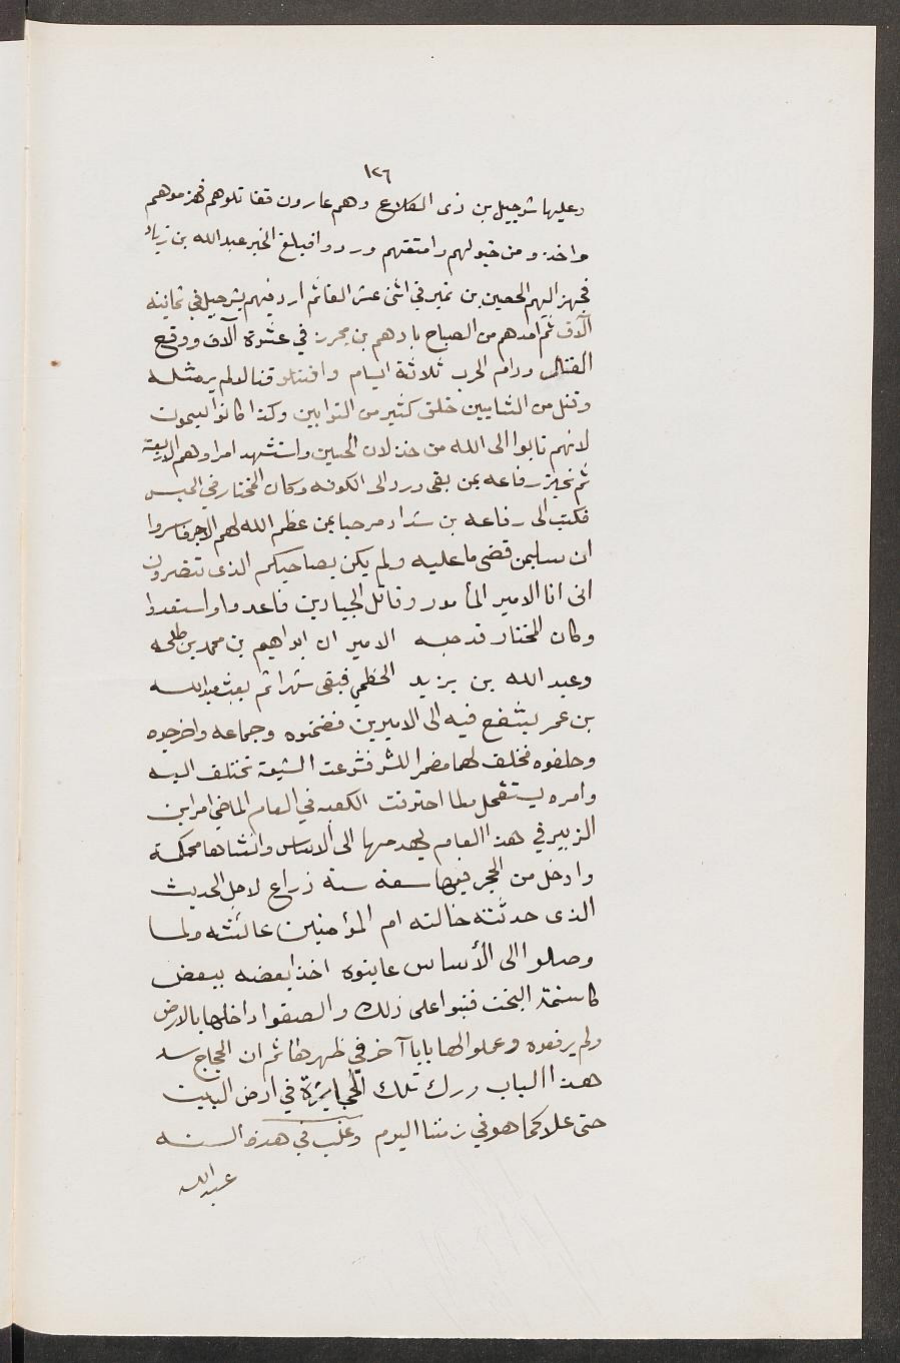 ١٢٦
وعليها شرجيل بن ذى الكلاع وهم عارون فقاتلوهم فهزموهم
واخذو من خيولهم وامتعتهم وردوا فبلغ الخبر عبد الله بن زياد
فجهز اليهم الحصين بن نمير في اثنى عشر الفا ثم اردفهم بشرجيل في ثمانية
آلآف ثم امدهم من الصباح بادهم بن محرز في عشرة آلاف ووقع
القتال ودام الحرب ثلاثة ايام واقتتلو قتالا لم ير مثله
وقتل من الشاميين خلق كثير من التوابين وكذا كانوا يسمون
لانهم تابوا الى الله من خذلان الحسين واستشهد امراوهم الاربعة
ثم تحيز رفاعه بمن بقى ورد الى الكوفه وكان المختار في الحبس
فكتب الى رفاعه بن شداد مرحبا بمن عظم الله لهم الاجر فابشروا
ان سليمن قضى ما عليه ولم يكن بصاحبكم الذى تنتصرون
انى انا الامير المأمور وقاتل الجبارين فاعدوا واستعدوا
وكان المختار قد حبسه الاميران ابراهيم بن محمد بن طلحه
وعبد الله بن يزيد الخطمي فبقى شهرا ثم بعث عبد الله
بن عمر يشفع فيه الى الاميرين فضمنوه وجماعه واخرجوه
وحلفوه فحلف لهما مضمرا للشر فشرعت الشيعة تختلف اليه
وامره يستفحل ولما احترقت الكعبه في العام الماضي امر ابن
الزبير في هذا العام بهدمها الى الاساس وانشاها محكمة
وادخل من الحجر فيها سعة ستة ذراع لاجل الحديث
الذى حدثته خالته ام المؤمنين عائشه ولما
وصلوا الى الأساس عاينوه اخذا بعضه ببعض
كاسنمة البخت فبنوا على ذلك والصقوا داخلها بالارض
ولم يرفعوه وعملوا لها بابا آخر في ظهرها ثم ان الحجاج سد
هذا الباب ورك تلك الحجارة في ارض البيت
حتى علا كما هو في زمننا اليوم وغلب في هذه السنه
عبد الله